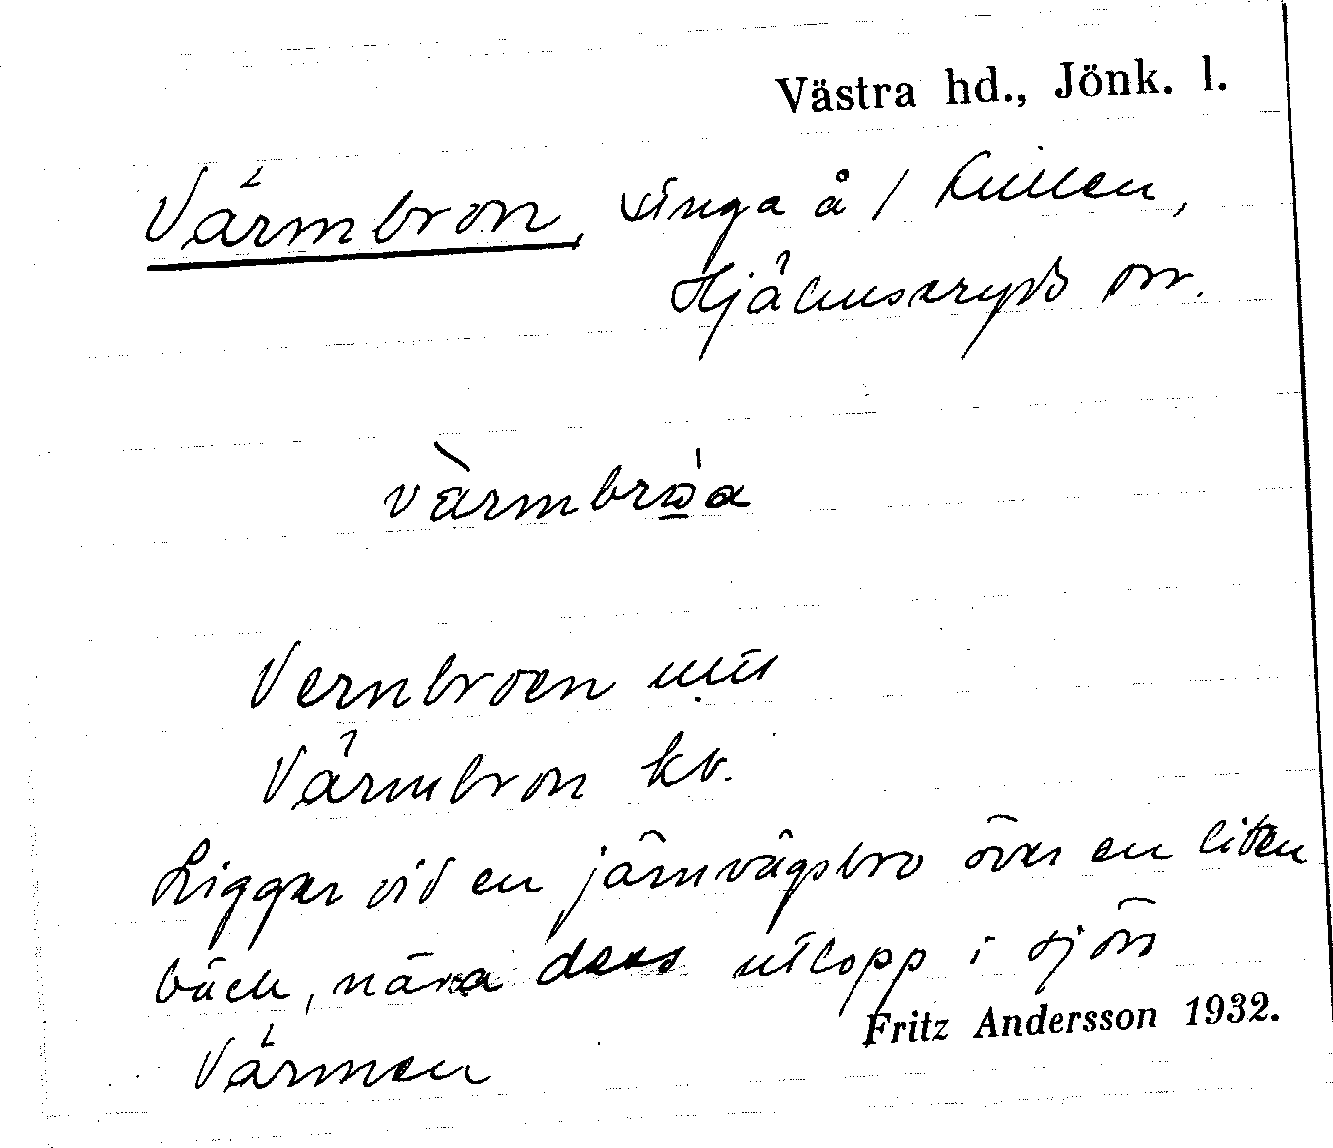 Västra hd., Jönk. l.
Värmbron, ä å / Kullen,
Hjälmseryds sn.
värmbroa
Vernbroen
Värmbron kb.
Liggar vid en järnvägsbro över en liten
bäck, nära dess utlopp i sjön
Värmen
Fritz Andersson 1932.